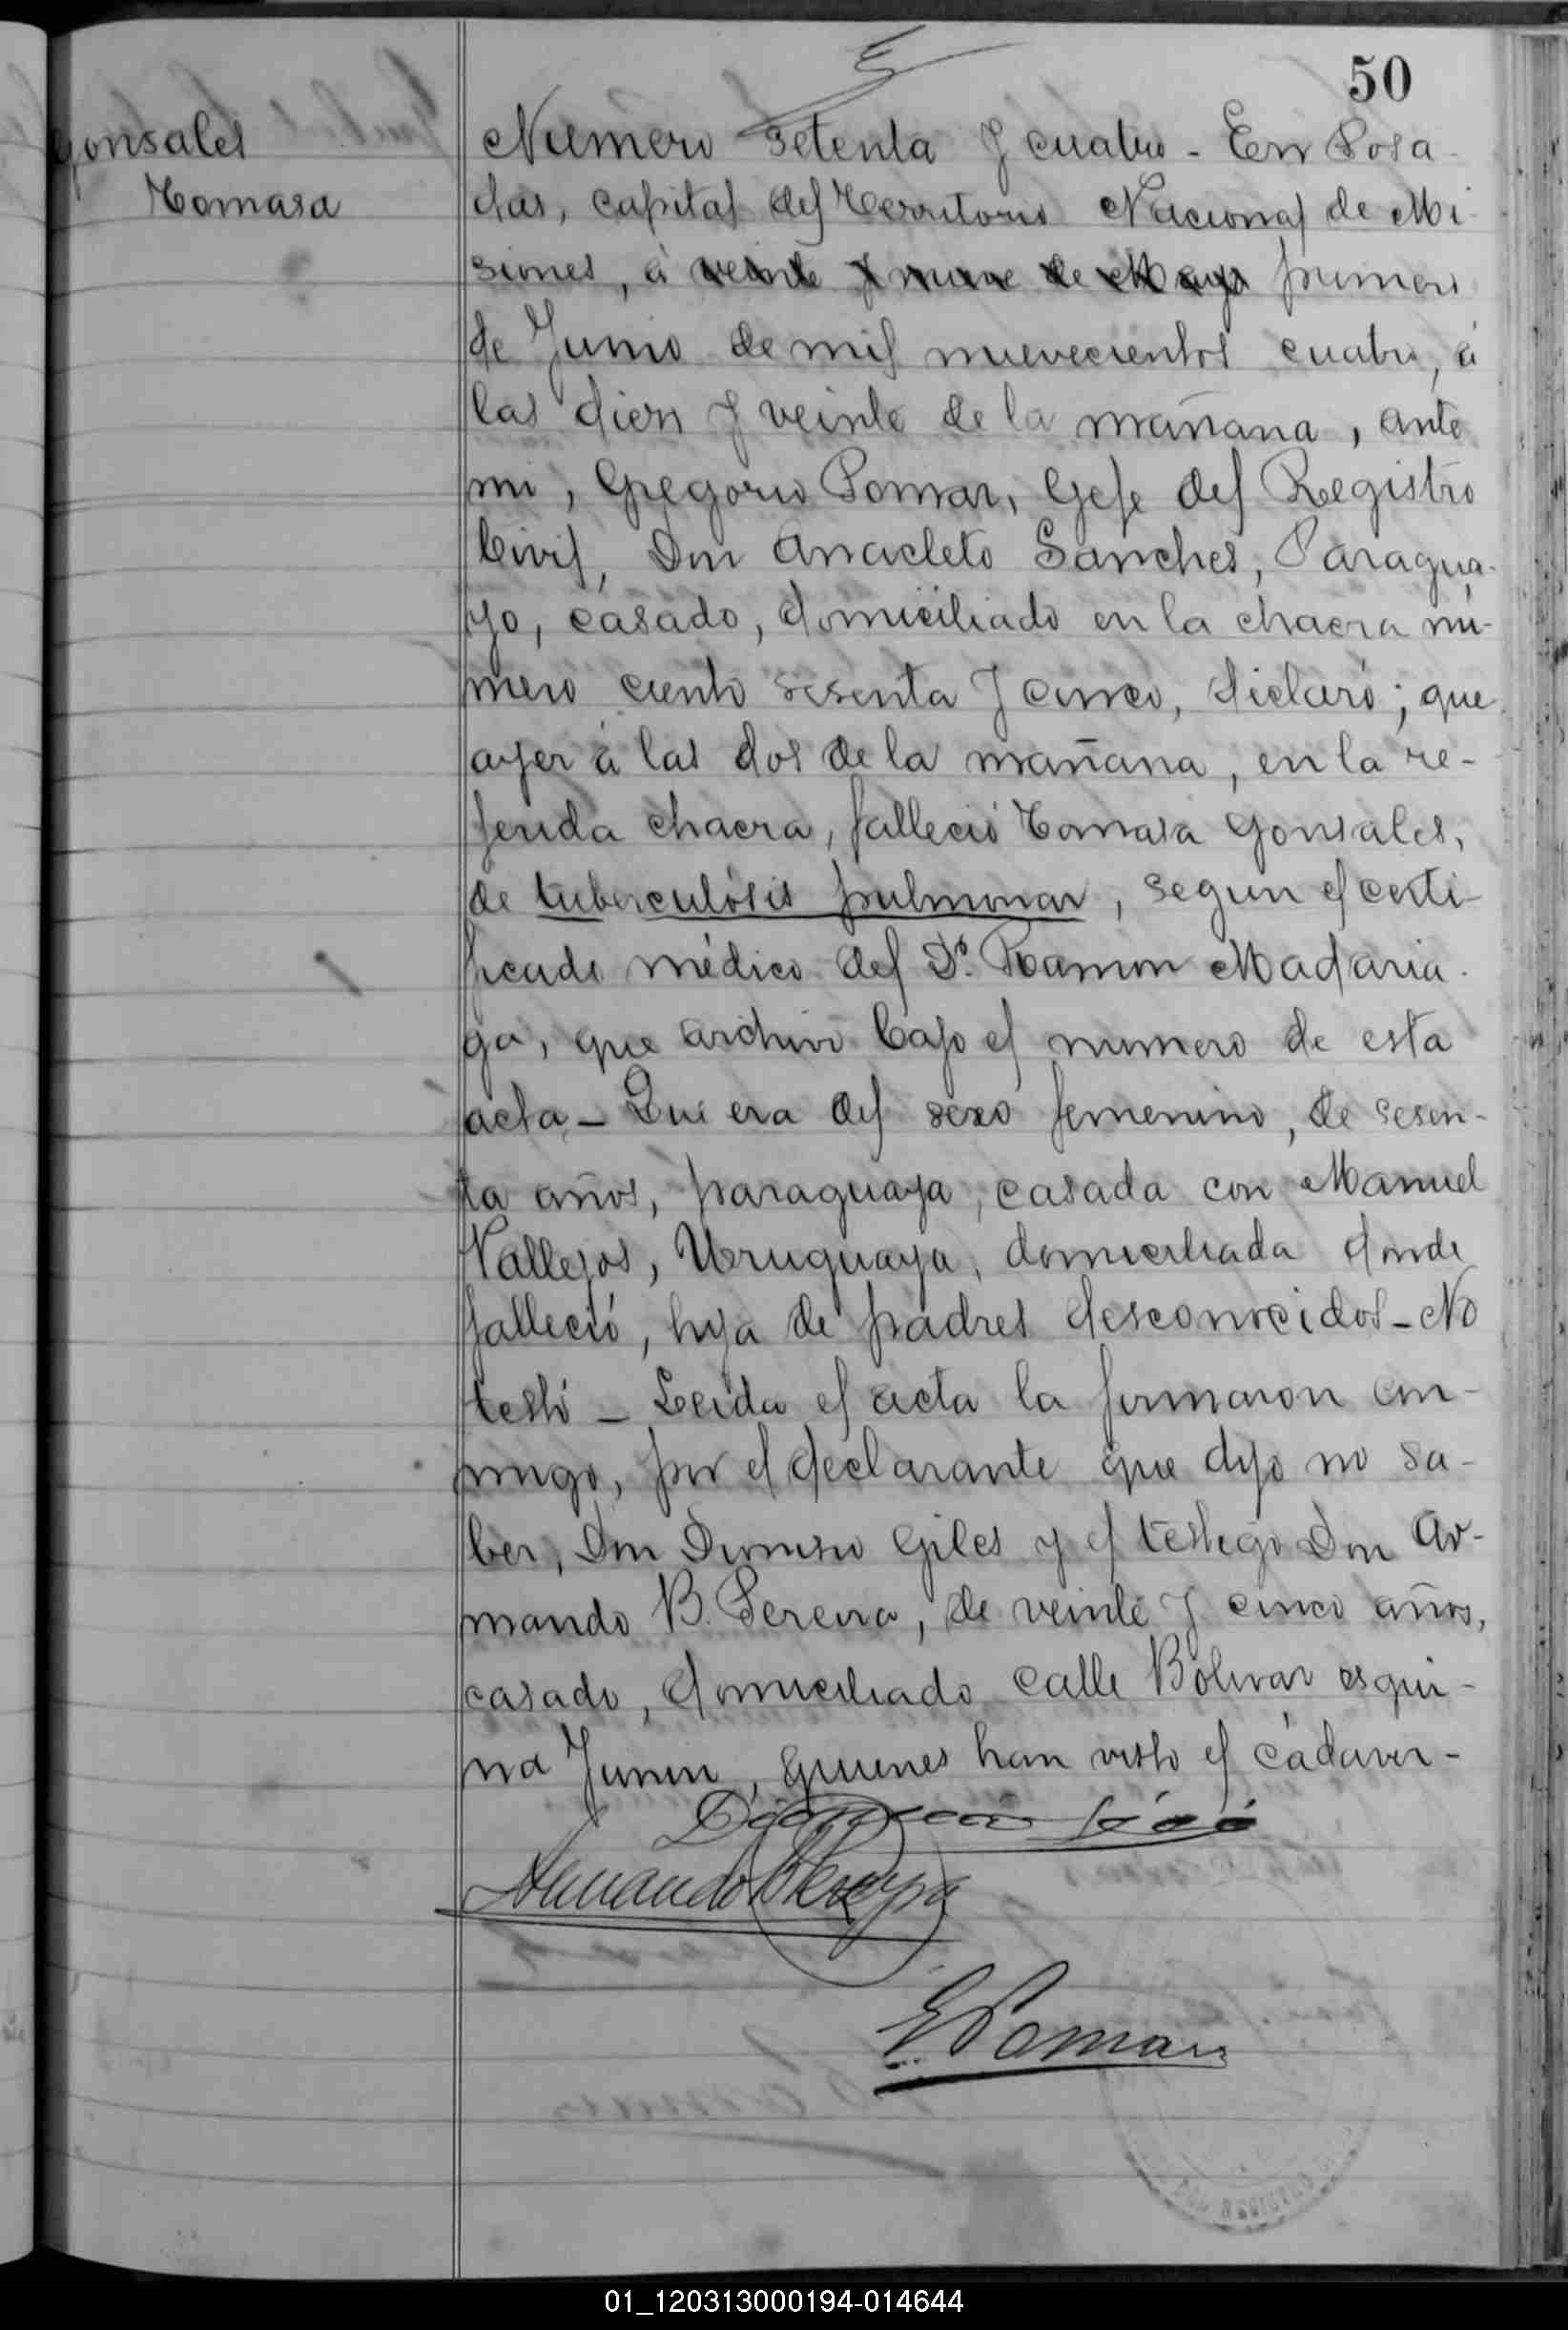 50
Gonsales
Tomasa
Número setenta y cuatro - En Posa-
das, capital del Territorio Nacional de Mi-
siones, á veinte y nueve de Mayo primero
de Junio de mil nuevecientos cuatro, á
las diez y veinte de la mañana, ante
mi, Gregorio Pomar, Gefe del Registro
Civil, Don Anacleto Sanches, Paragua-
yo, casado, domiciliado en la chacra nú-
mero ciento sesenta y cinco, declaró; que
ayer á las dos de la mañana, en la re-
ferida chacra, falleció Tomasa Gonsales,
de tuberculósis pulmonar, segun el certi-
ficado médico del Dr. Ramon Madaria-
ga, que archivo bajo el numero de esta
acta - Que era del sexo femenino, de sesen-
ta años, paraguaya, casada con Manuel
Vallejos, Uruguaya, domiciliada donde
falleció, hija de padres desconocidos - No
testó - Leida el acta la firmaron con-
migo, por el declarante que dijo no sa-
ber, Don Dionisio Giles y el testigo Don Ar-
mando B. Pereira, de veinte y cinco años,
casado, domiciliado calle Bolivar esqui-
na Junin, quienes han visto el cádaver -
Armando B Pereyra
G Pomar
01_120313000194-014644